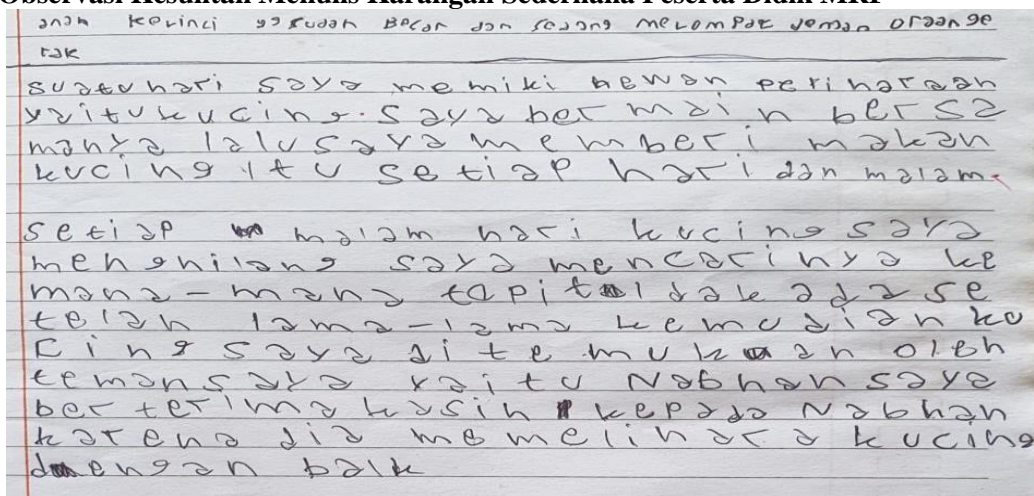 Observasi Kesulitan Menulis Karangan Sederhana Peserta Didik MRF
anak kerinci yg sudah Besar dan sedang melompat
suatu hari saya memiki hewan perinaraan
yaitu kucing. saya ber mai n ber sa
manya lalu saya me mberi makan
kucing itu setiap hari dan malam.
setiap malam hari kucing saya
menghilang saya mencarinya ke
mana-mana tapi tidak ada se
telah lama-lama kemudian ku
cing saya ditemukan oleh
teman saya yaitu Nabhan saya
ber terima kasih kepada Nabhan
karena dia memelihara kucing
dengan baik